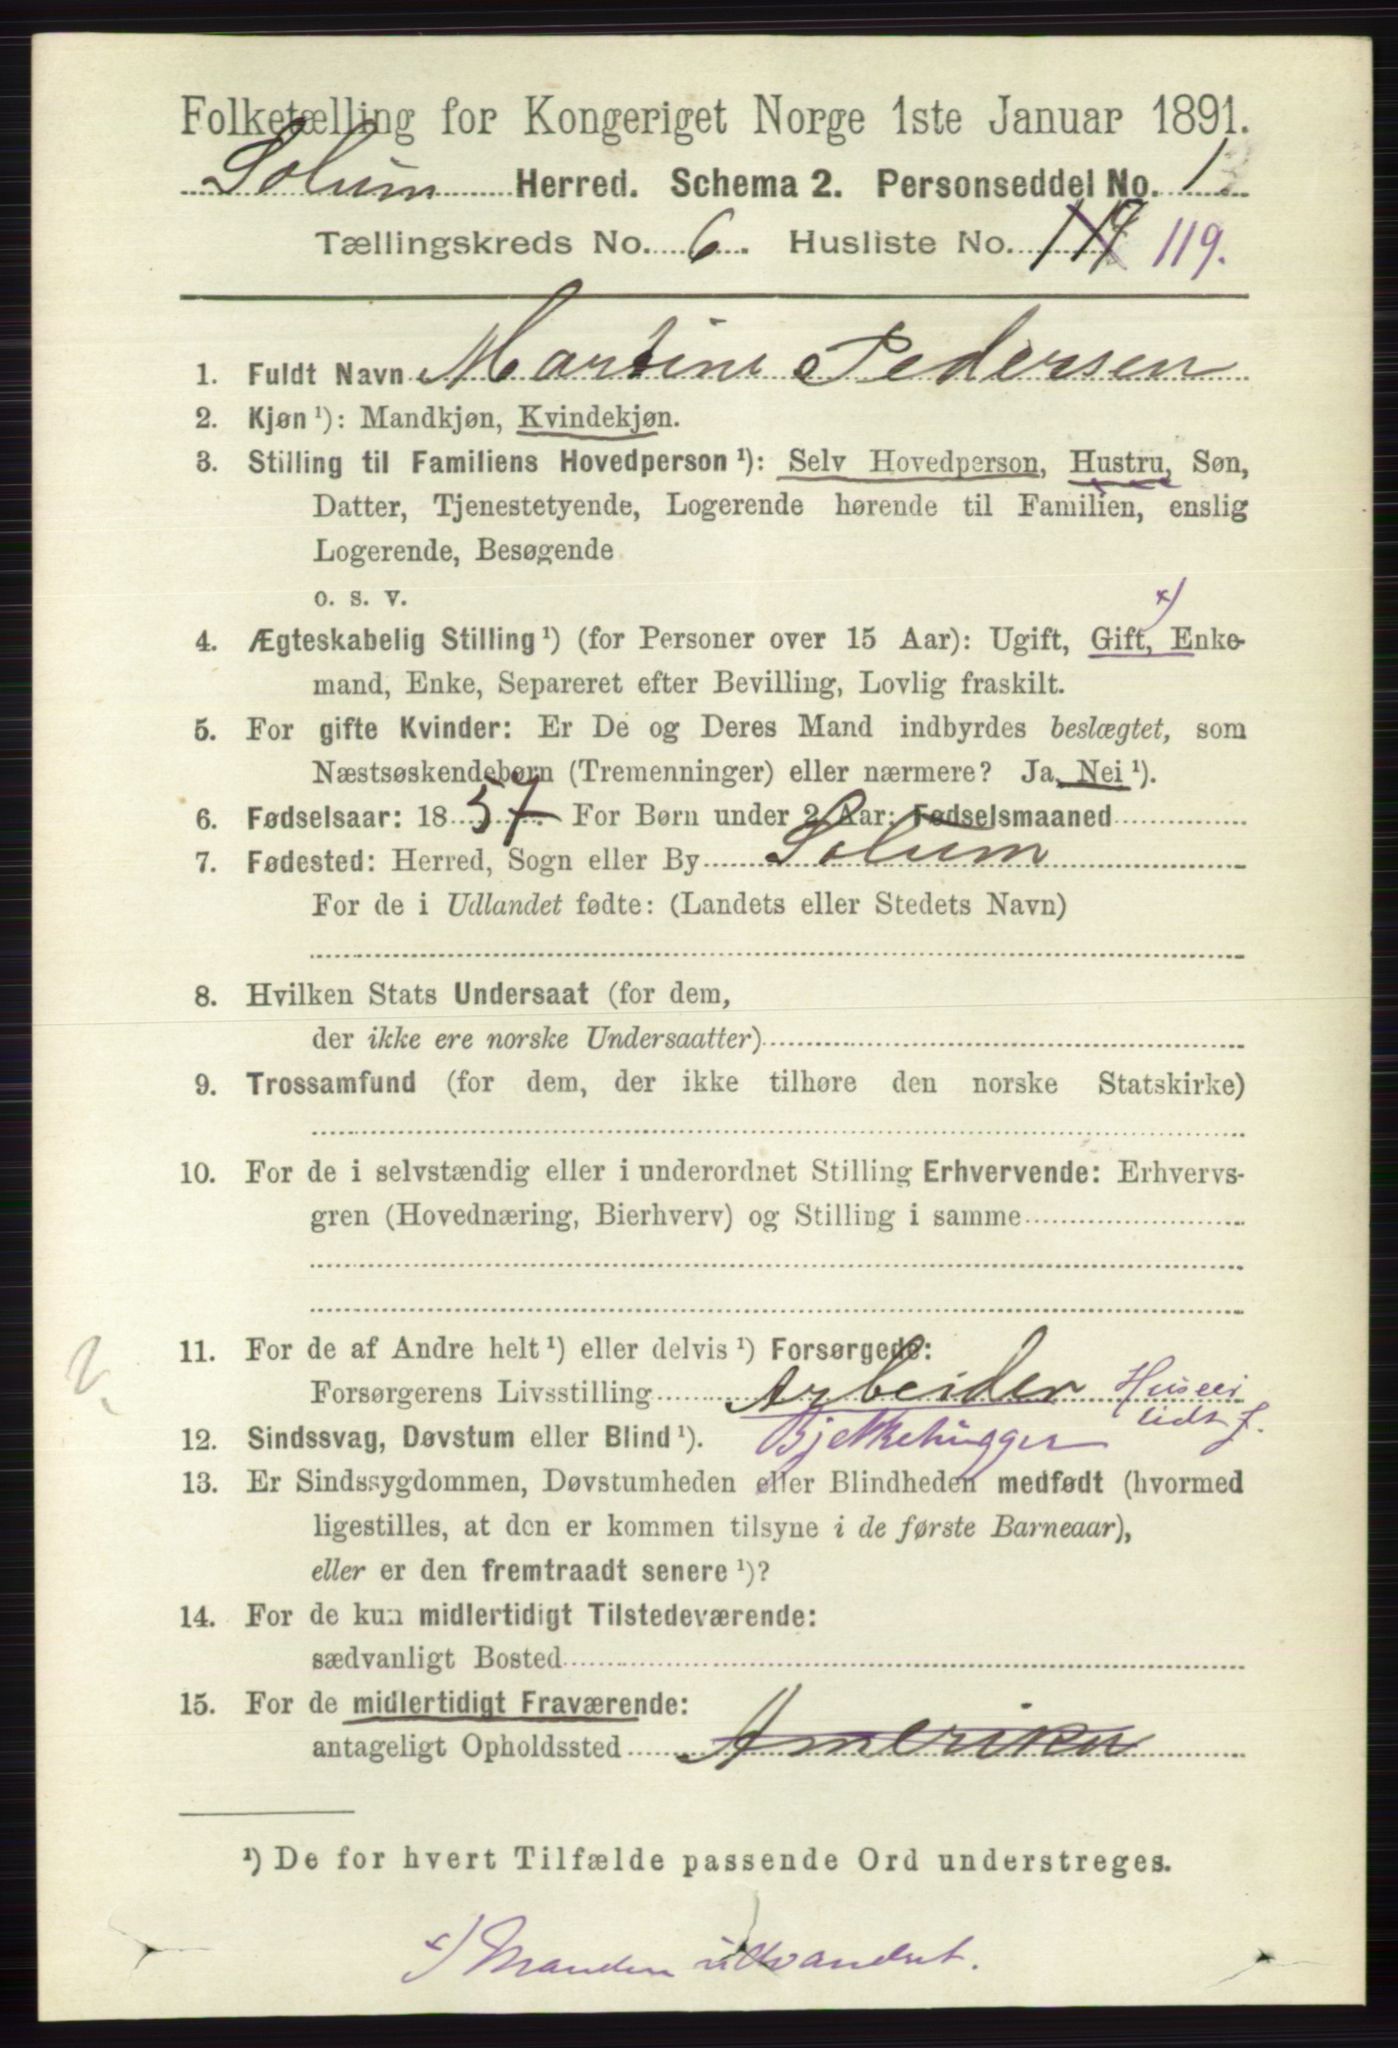 Folketælling for Kongeriget Norge 1ste Januar 1891.
Solum Herred. Schema 2. Personseddel No. 1
Tællingskreds No. 6. Husliste No. 119 119.
1. Fuldt Navn Martine Pedersen
2. Kjøn ¹): Mandkjøn, Kvindekjøn.
3. Stilling til Familiens Hovedperson ¹): Selv Hovedperson, Hustru, Søn,
Datter, Tjenestetyende, Logerende hørende til Familien, enslig
Logerende, Besøgende
o. s. v.
×)
4. Ægteskabelig Stilling ¹) (for Personer over 15 Aar): Ugift, Gift, Enke-
mand, Enke, Separeret efter Bevilling, Lovlig fraskilt.
5. For gifte Kvinder: Er De og Deres Mand indbyrdes beslægtet, som
Næstsøskendebørn (Tremenninger) eller nærmere? Ja, Nei ¹).
6. Fødselsaar: 1857. For Børn under 2 Aar: Fødselsmaaned
7. Fødested: Herred, Sogn eller By Solum
For de i Udlandet fødte: (Landets eller Stedets Navn)
8. Hvilken Stats Undersaat (for dem,
der ikke ere norske Undersaatter)
9. Trossamfund (for dem, der ikke tilhøre den norske Statskirke)
10. For de i selvstændig eller i underordnet Stilling Erhvervende: Erhvervs-
gren (Hovednæring, Bierhverv) og Stilling i samme
11. For de af Andre helt ¹) eller delvis ¹) Forsørgede:
Forsørgerens Livsstilling Arbeider
12. Sindssvag, Døvstum eller Blind ¹). Bjelkehugger
13. Er Sindssygdommen, Døvstumheden eller Blindheden medfødt (hvormed
ligestilles, at den er kommen tilsyne i de første Barneaar),
eller er den fremtraadt senere ¹)?
14. For de kun midlertidigt Tilstedeværende:
sædvanligt Bosted
15. For de midlertidigt Fraværende:
antageligt Opholdssted Amerika
¹) De for hvert Tilfælde passende Ord understreges.
×) Manden udvandret.